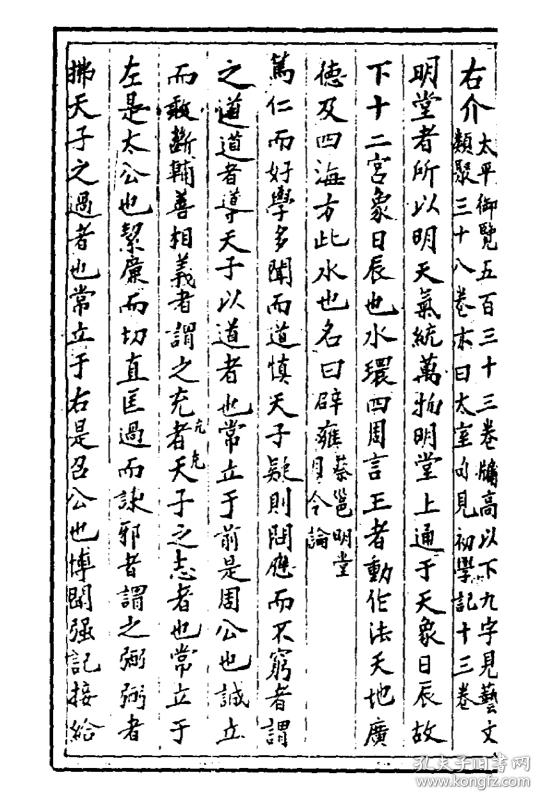 右介太平御覽五百三十三卷牖高以下九字見藝文類聚三十八卷末曰太室句見初學記十三卷
明堂者所以明天氣統萬物明堂上通于天象日辰故
下十二宮象日辰也水環四周言王者動作法天地廣
德及四海方此水也名曰辟雍蔡邕明堂月令論
篤仁而好學多聞而道慎天子疑則問應而不窮者謂
之道道者導天子以道者也常立于前是周公也誠立
而敢斷輔善相義者謂之充充者天子之志者也常立于
左是太公也絜廉而切直匡過而諫邪者謂之弼弼者
拂天子之過者也常立于右是召公也博聞强記接給
孔夫子旧书网
kongfz.com